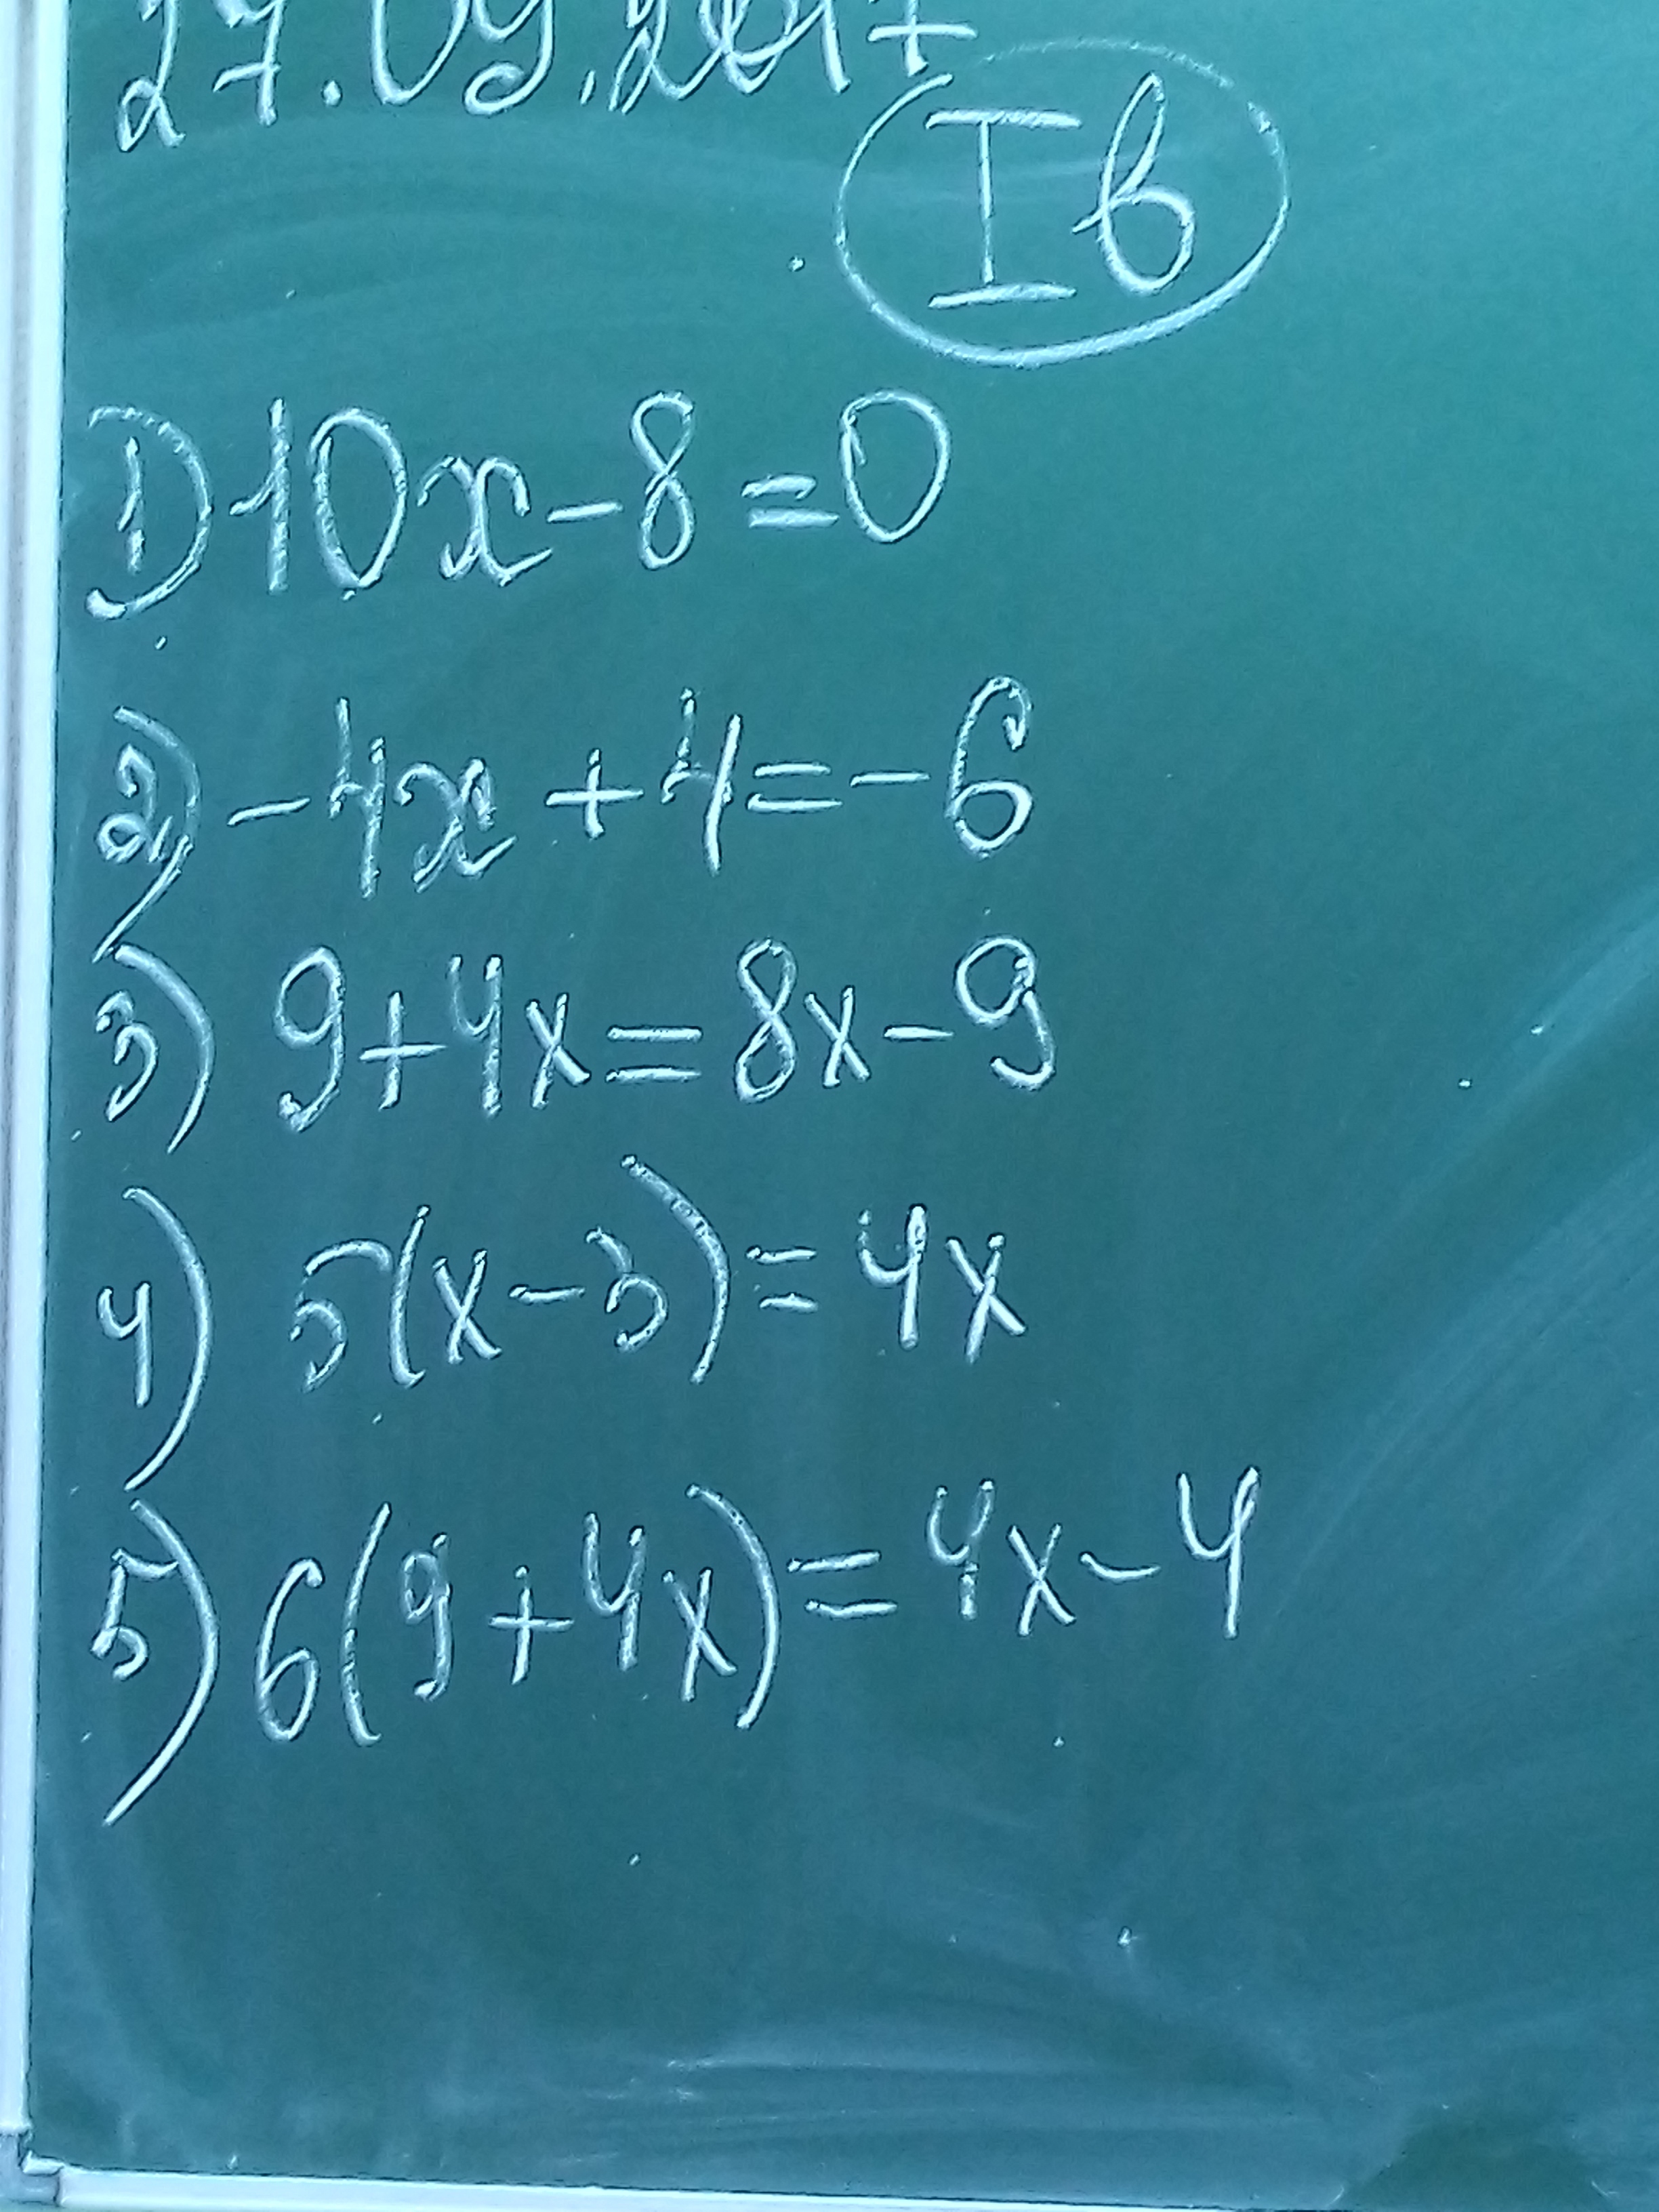 27.09.2017
I в
1) 10x - 8 = 0
2) -4x + 4 = -6
3) 9 + 4x = 8x - 9
4) 5(x - 3) = 4x
5) 6(9 + 4x) = 4x - 4